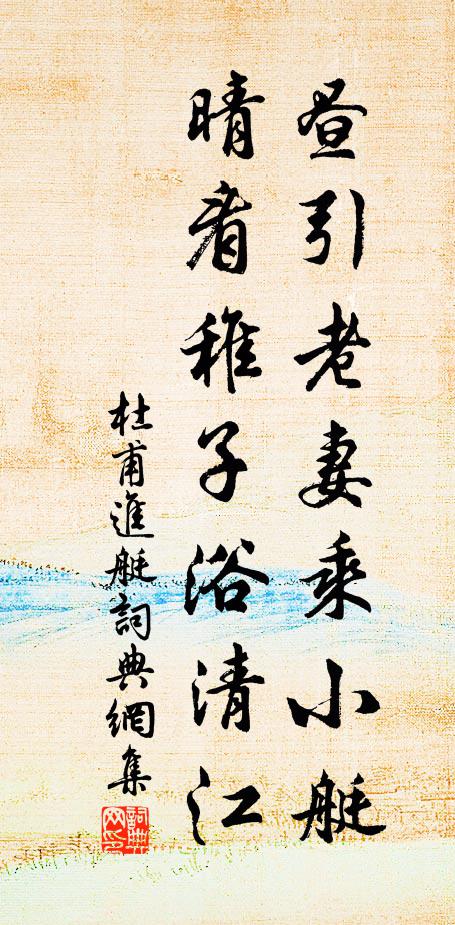 昼引老妻乘小艇
晴看稚子浴清江
杜甫進艇詞典網集
詞典网印